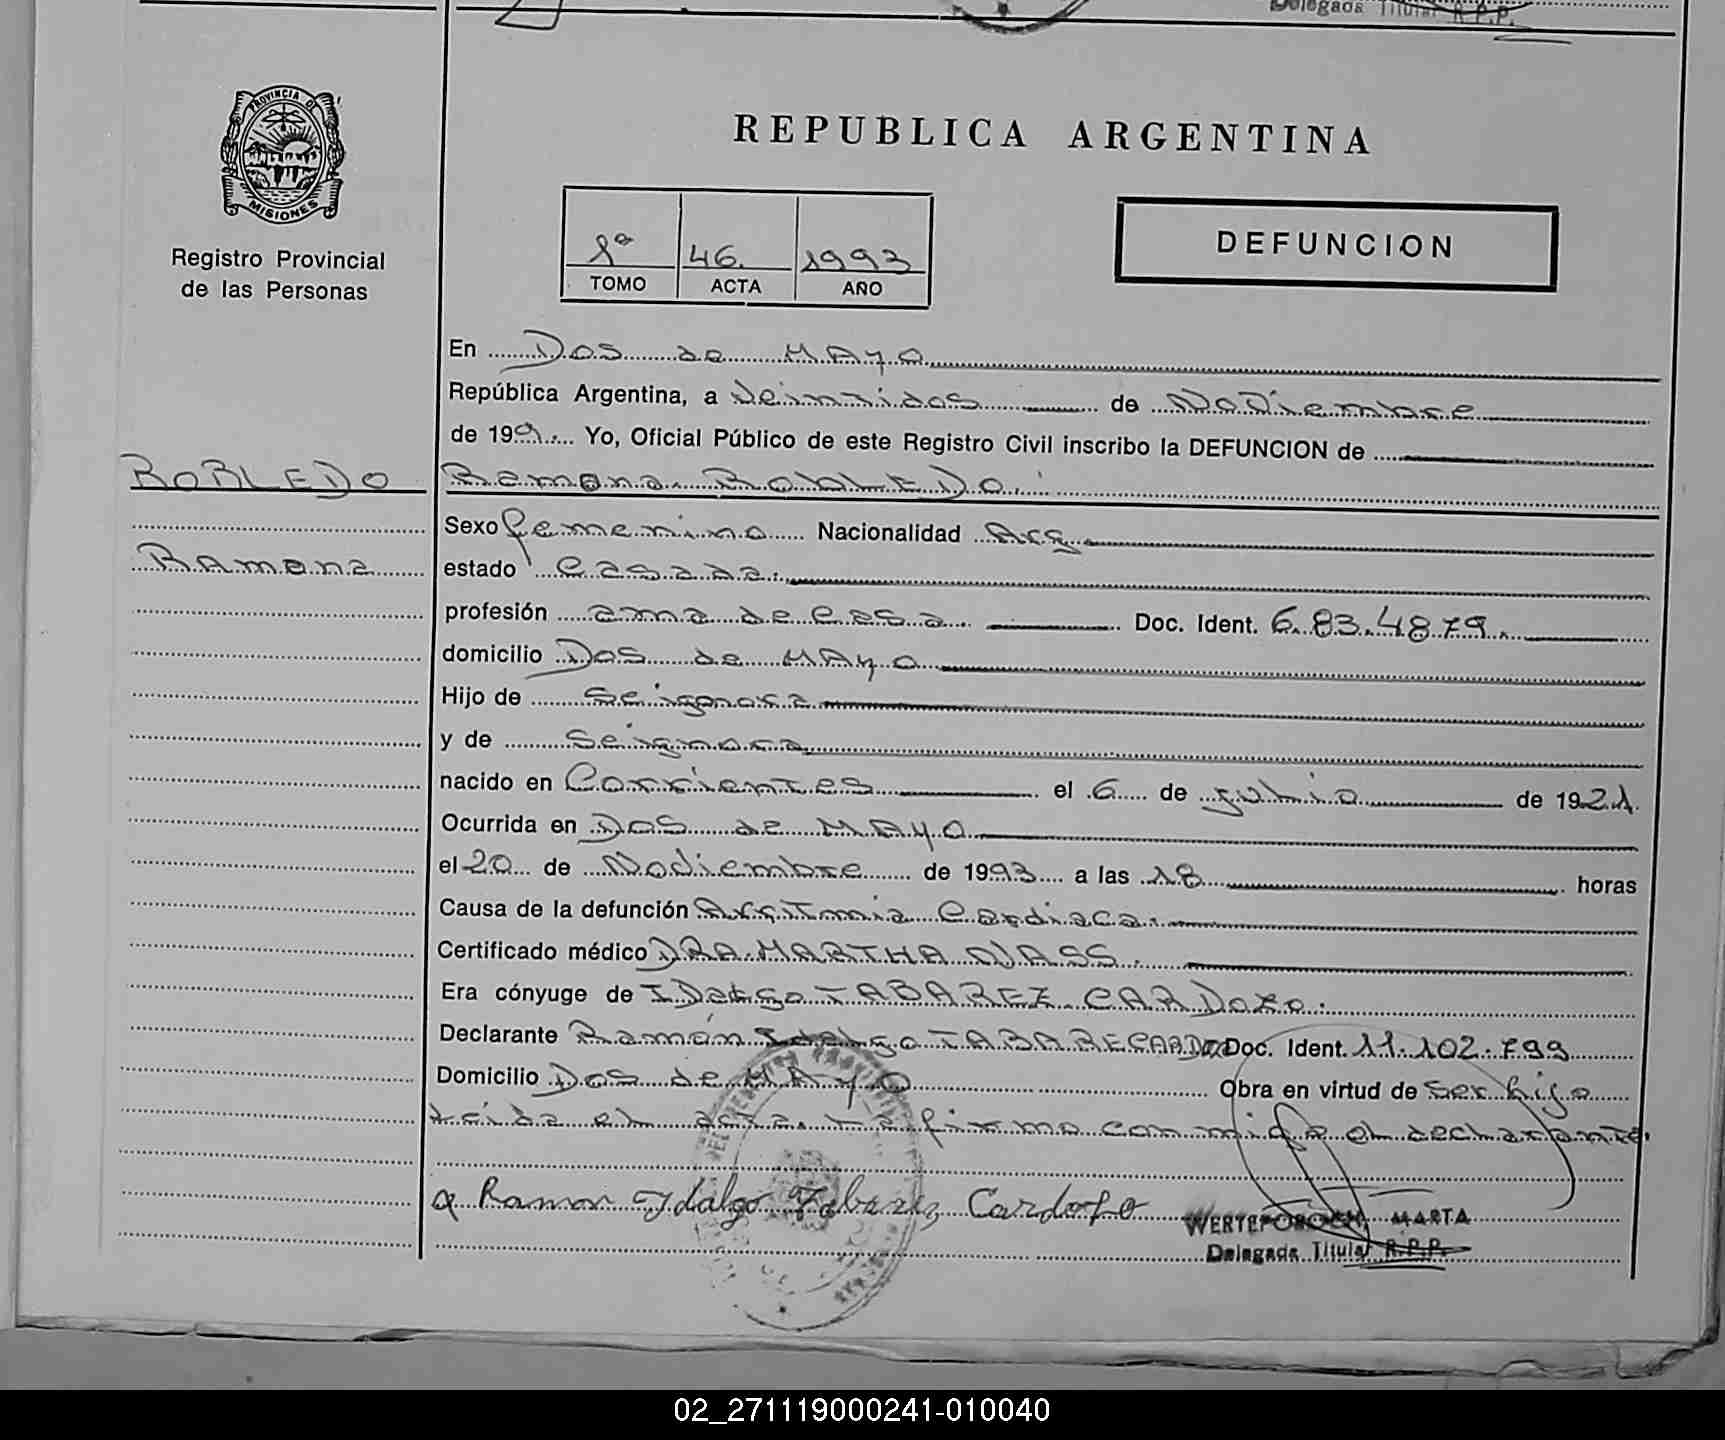 Delegada Titular R.P.P.
PROVINCIA DE
MISIONES
Registro Provincial
de las Personas
REPUBLICA ARGENTINA
1º 46. 1993
TOMO ACTA AÑO
DEFUNCION
En Dos de MAyo
República Argentina, a Veintidos de Noviembre
de 199 Yo, Oficial Público de este Registro Civil inscribo la DEFUNCION de
ROBLEDO
Ramona RobLEDo.
Sexo femenino Nacionalidad Arg.
Ramona
estado Casada.
profesión ama de casa. Doc. Ident. 6.834.879.
domicilio Dos de MAyo
Hijo de Seignora
y de Seignora
nacido en Corrientes el 6 de julio de 1921.
Ocurrida en Dos de MAyo
el 20 de Noviembre de 1993 a las 18 horas
Causa de la defunción Arritmia Cardiaca.
Certificado médico DRA. MARTHA NASS.
Era cónyuge de TABAREZ CARDozo.
Declarante Ramón Idalgo TABARECARDO Doc. Ident. 11.102.799
Domicilio Dos de MAyo Obra en virtud de ser hijo
Leída el acta, La firma conmigo el declarante.
Ramon Ydalgo Tabarez Cardozo
MARTA
Delegada Titular R.P.P.
02_271119000241-010040